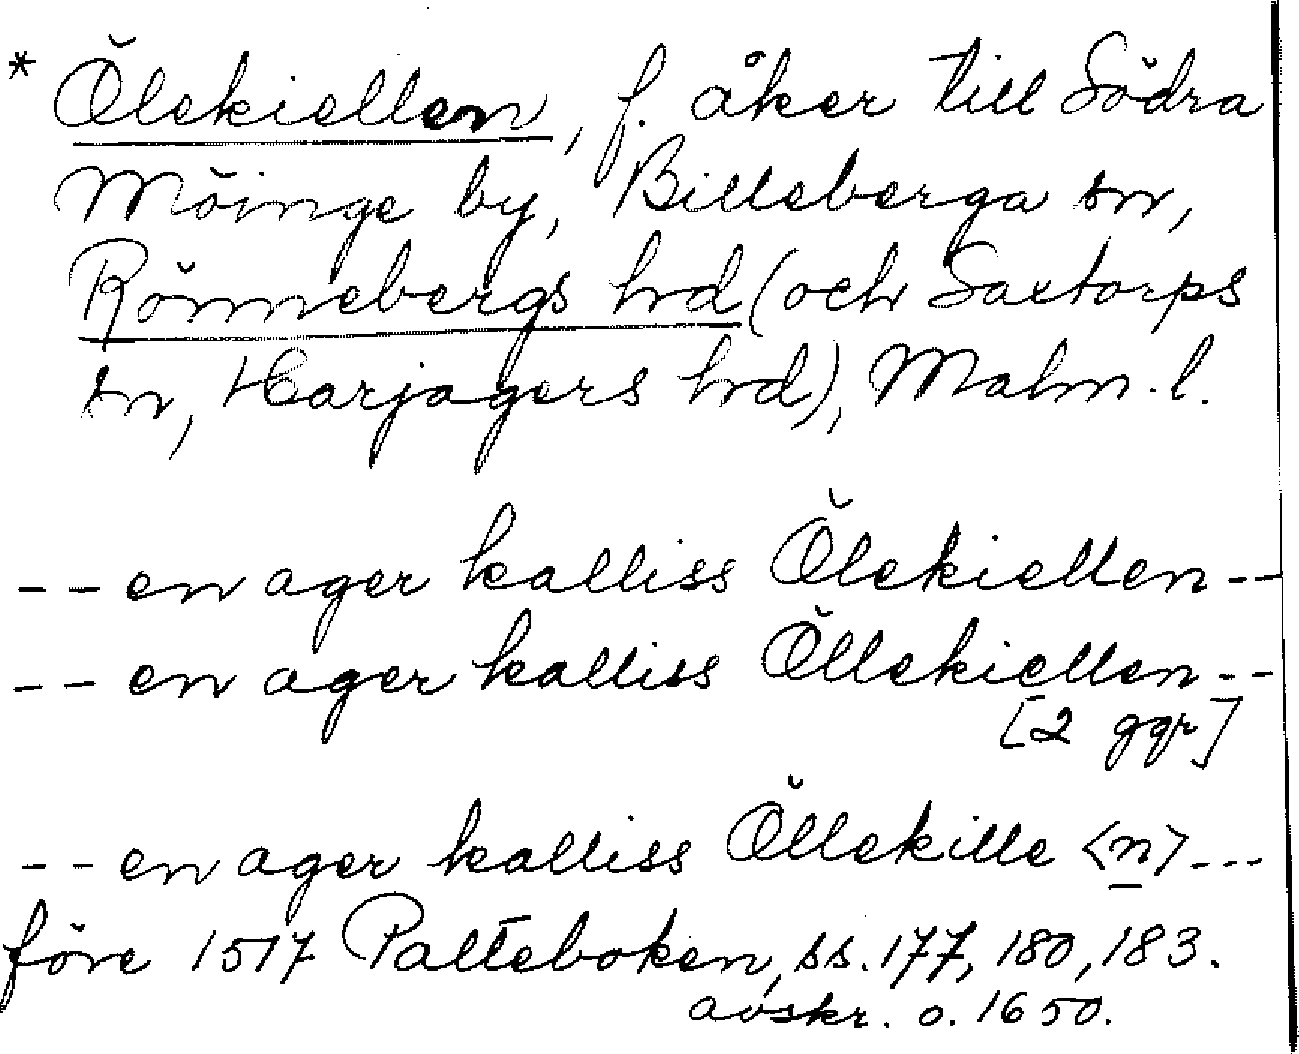 * Ölekiellen, f. åker till Södra
Möinge by, Billeberga sn,
Rönnebergs hrd (och Saxtorps
sn, Harjagers hrd), Malm. l.
-- en ager kalliss Ölekiellen --
-- en ager kalliss Öllekiellen --
[2 ggr]
-- en ager kalliss Öllekille <n> ---
före 1517 Palteboken, ss. 177, 180, 183.
avskr. o. 1650.